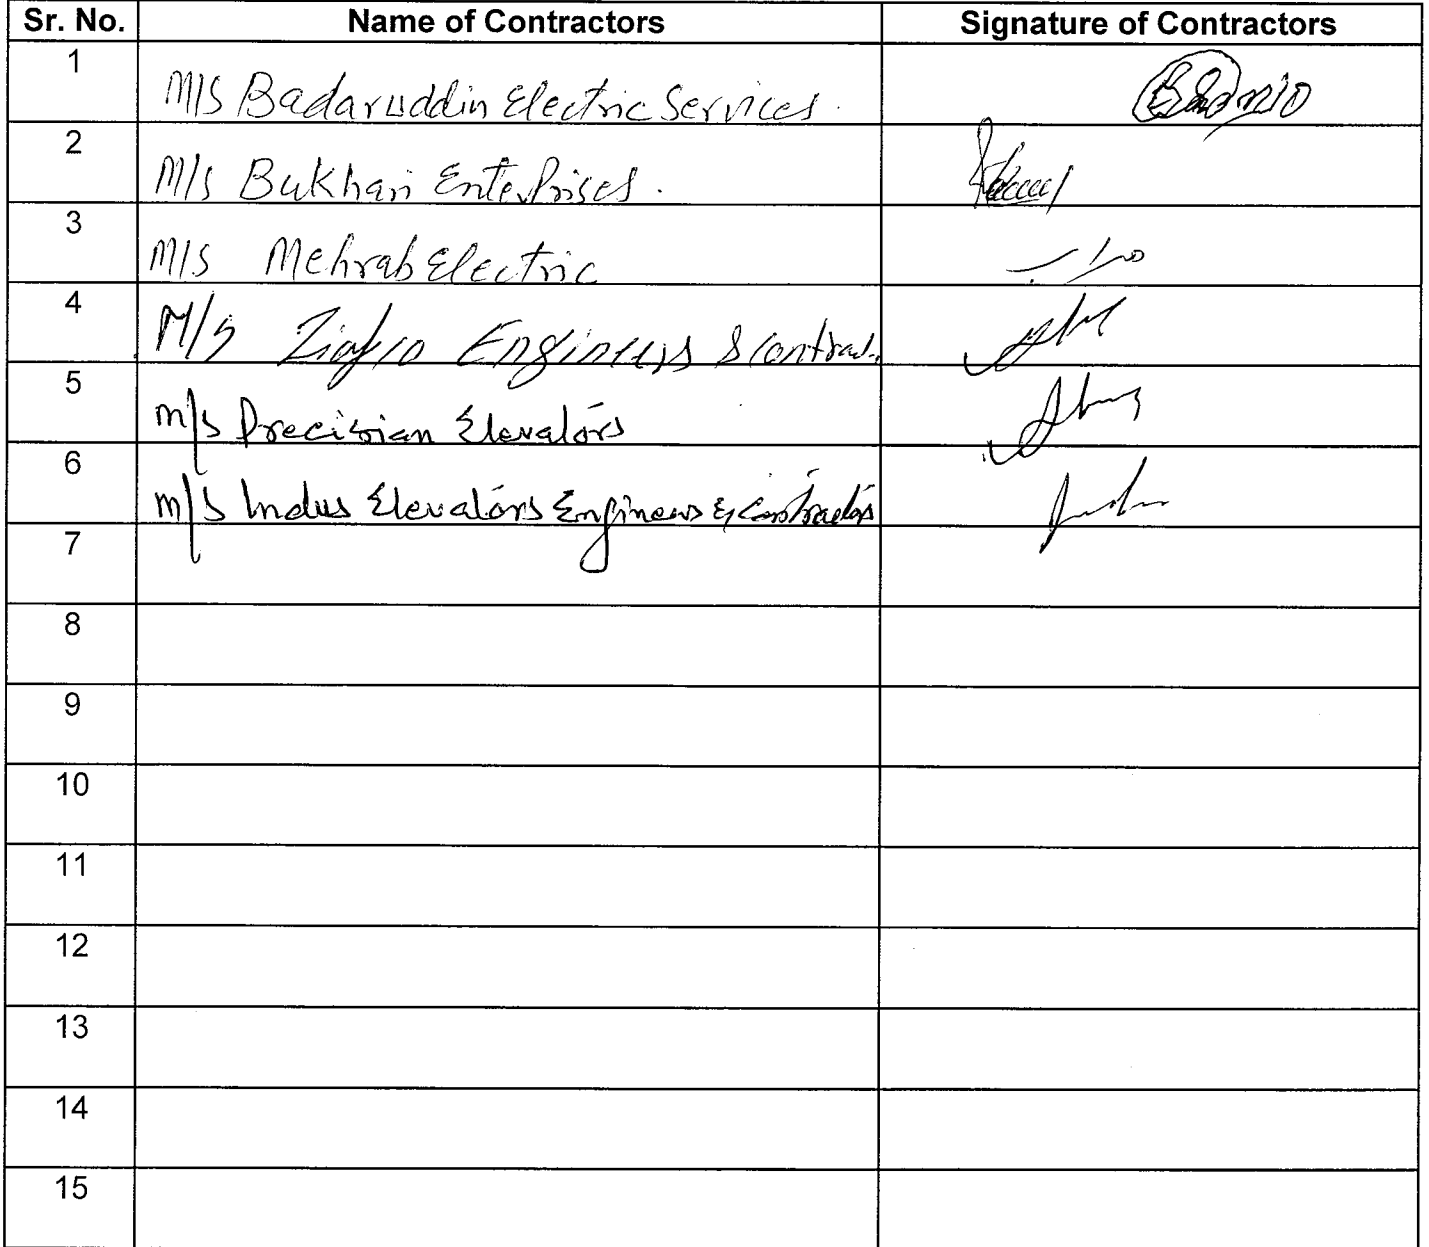 Sr. No. Name of Contractors Signature of Contractors
1 M/S Badaruddin Electric Services.
2 M/S Bukhari Enterprises.
3 M/S Mehrab Electric مهراب
4 M/S Engineers & Contrac.
5 M/S Precisian Elevators
6 M/S Indus Elevators Engineers & Contractors
7
8
9
10
11
12
13
14
15